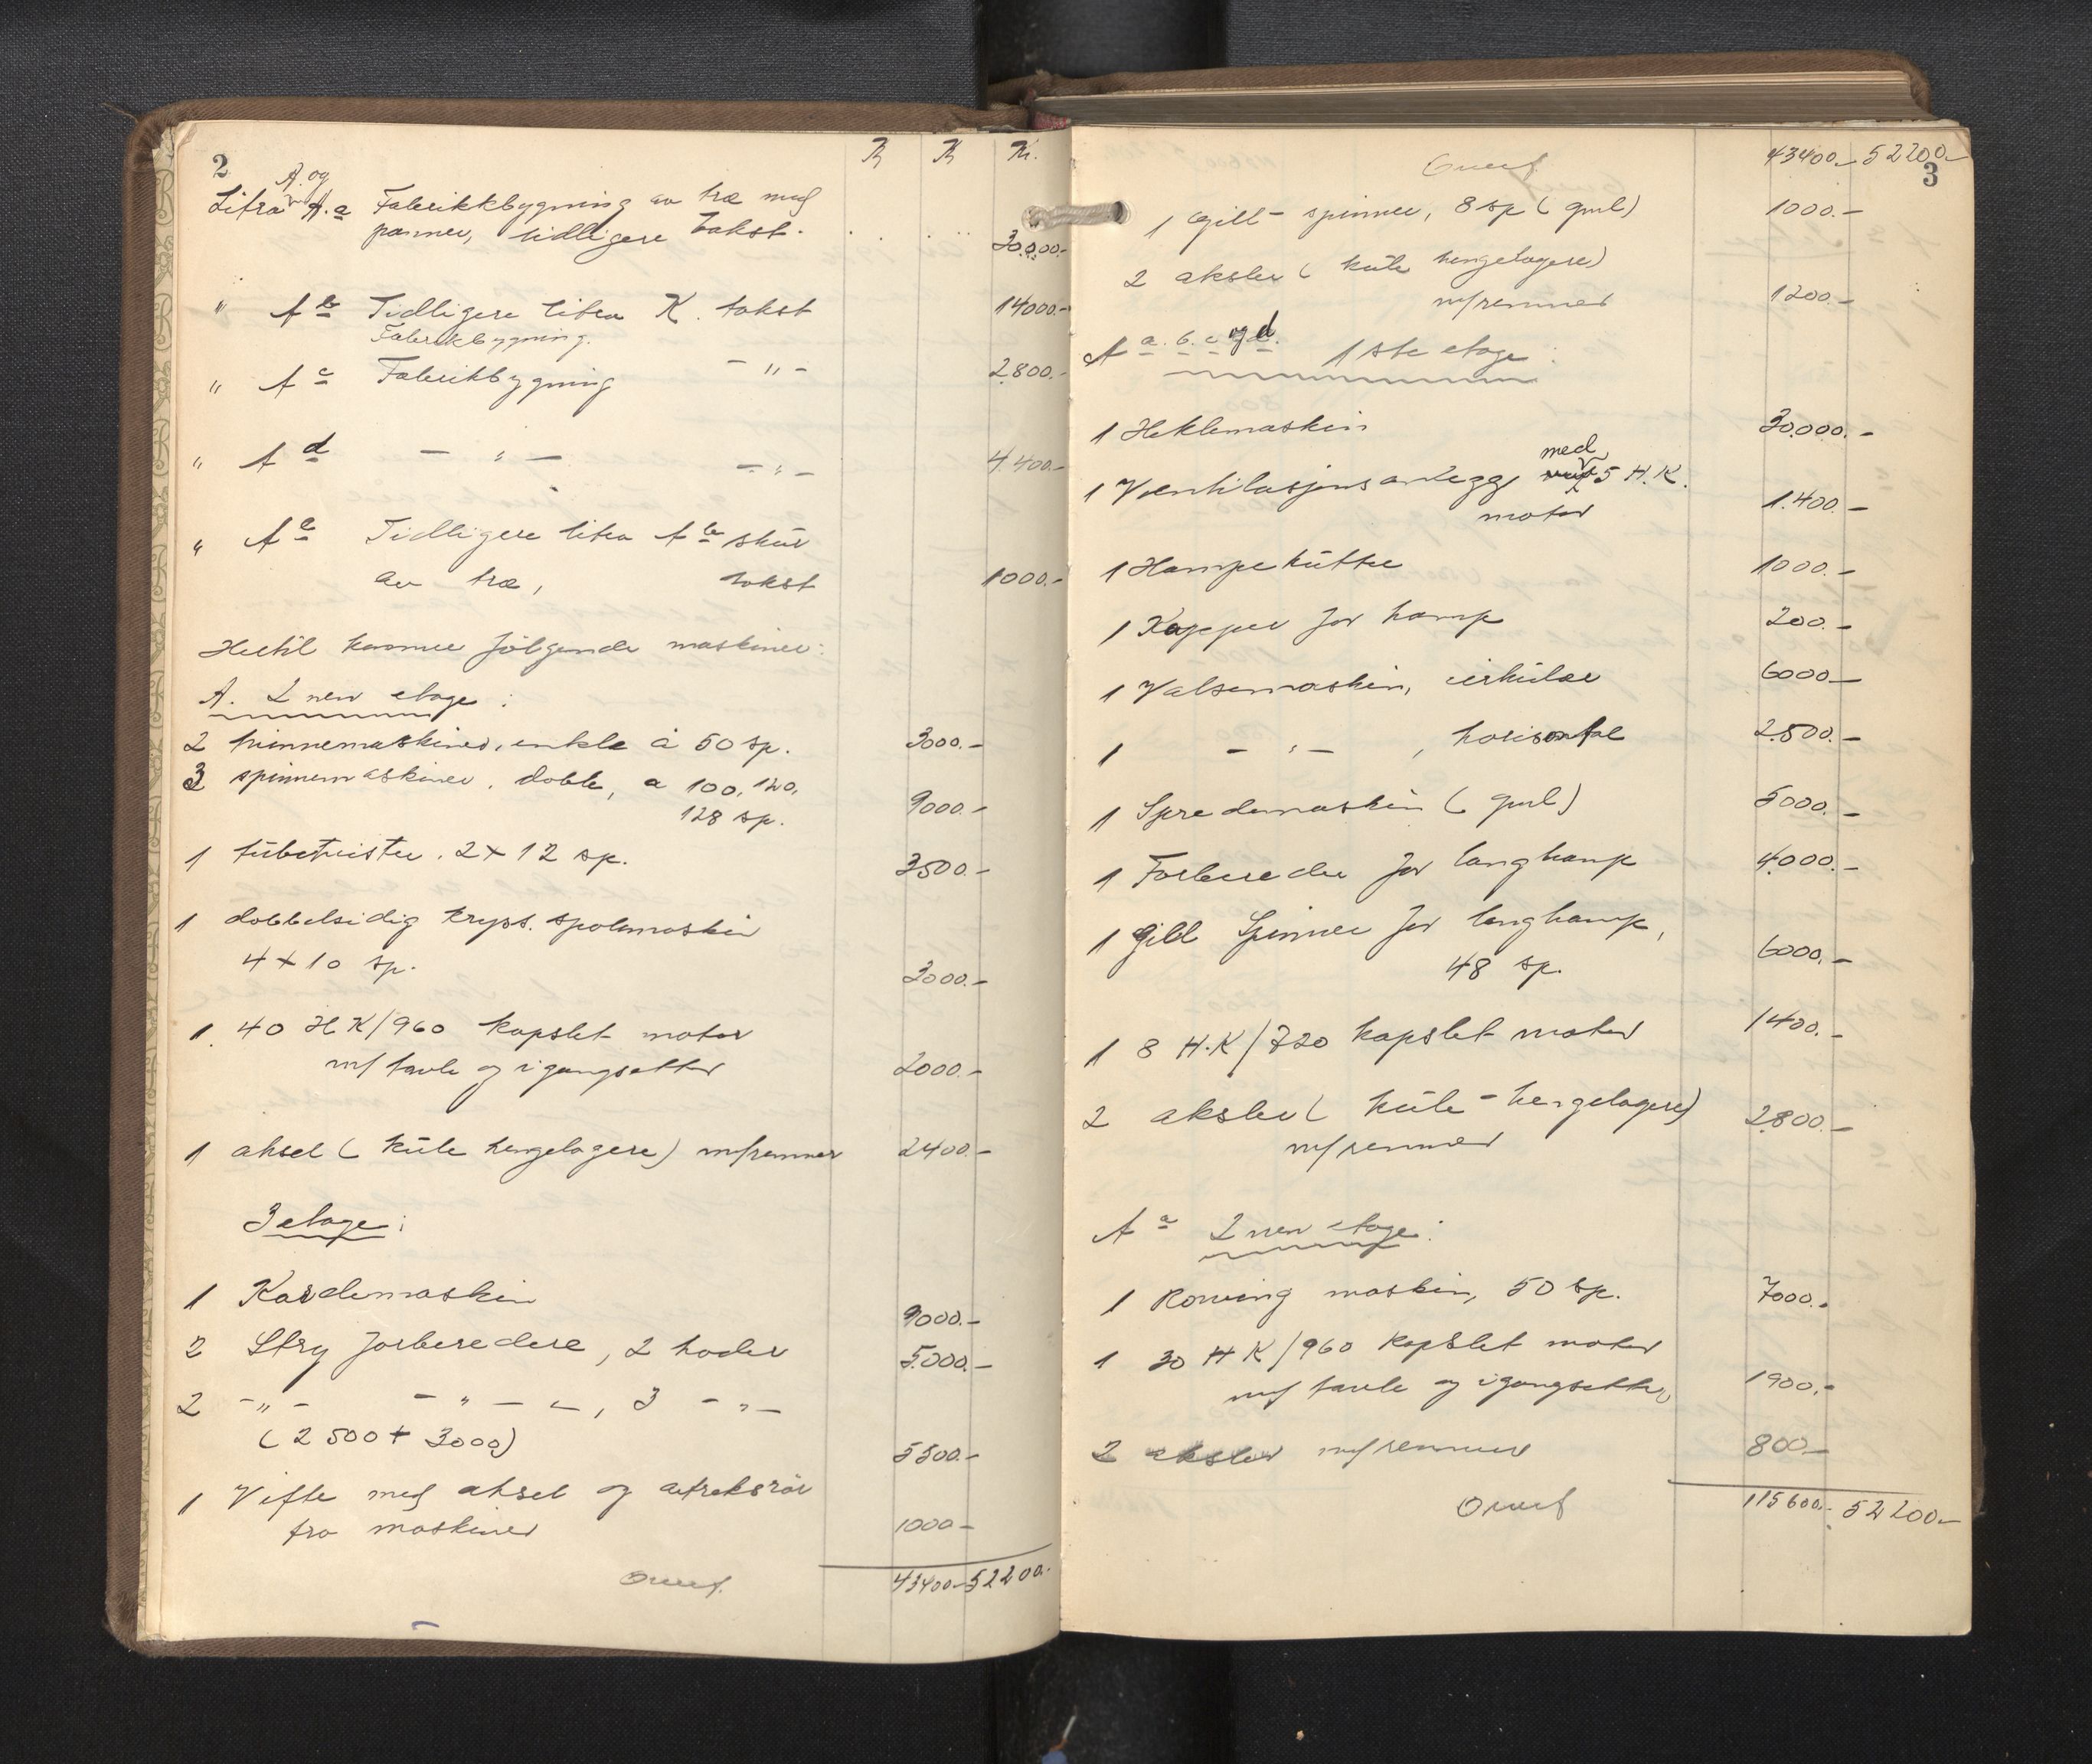 2
K K Kr.
A. og
Litra A.a Fabrikkbygning av træ med
panner, tidligere takst. 30000.-
" A b Tidligere litra K. takst 14000.-
Fabrikbygning.
" A c Fabrikbygning - " - 2800.-
" A d - " - - " - 4.400.-
" A e Tidligere litra A b skür
av træ, takst 1000.-
Hertil kommer følgende maskiner:
A. 2 nen etage:
2 tvinnemaskiner, enkle à 50 sp. 3000.-
3 spinnemaskiner, doble, a 100, 120,
128 sp. 9000.-
1 tübetvister. 2 x 12 sp. 3500.-
1 dobbelsidig kryss. spolemaskin
4 x 10 sp. 3000.-
1. 40 H K/960 kapslet motor
m/ tavle og igangsetter 2000.-
1 aksel (küle hengelagere) m/remmer 2400.-
3 etage:
1 Kardemaskin 9000.-
2 Stry forberedere, 2 hoder 5.000.-
2 - " - - " - - , 3 - " -
(2 500 + 3000) 5500.-
1 Vifte med aksel og avtreksrör
fra maskiner 1000-
Overf. 43400- 52200.-
Overf. 43400.- 52200.-
3
1 Gill- spinner, 8 sp (gml) 1000.-
2 aksler (küle hengelagere)
m/remmer 1200.-
A a. b. c og d. 1 ste etage:
1 Heklemaskin 30.000.-
med
1 Ventilasjonsanlegg 5 H.K.
motor 1.400.-
1 Hampekütter 1000.-
1 Kapper for hamp 200.-
1 Valsemaskin, cirkülær 6000-
1 - " - , horisontal 2.500.-
1 Spredemaskin (gml) 5000.-
1 Forbereder for langhamp 4.000.-
1 Gill Spinner for langhamp,
48 sp. 6000.-
1 8 H.K/720 kapslet motor 1400.-
2 aksler (küle-hengelagere)
m/remmer 2.800.-
A a 2 nen etage:
1 Rowing maskin, 50 sp. 7000.-
1 30 H K/960 kapslet motor
m/ tavle og igangsetter 1900.-
2 aksler m/remmer 800-
Overf 115600.- 52200.-